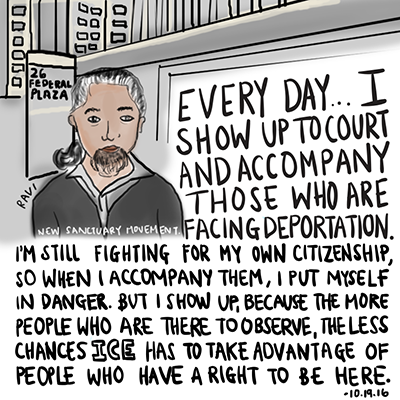 26
FEDERAL
PLAZA
RAVI
NEW SANCTUARY MOVEMENT
EVERY DAY... I
SHOW UP TO COURT
AND ACCOMPANY
THOSE WHO ARE
FACING DEPORTATION.
I'M STILL FIGHTING FOR MY OWN CITIZENSHIP,
SO WHEN I ACCOMPANY THEM, I PUT MYSELF
IN DANGER. BUT I SHOW UP, BECAUSE THE MORE
PEOPLE WHO ARE THERE TO OBSERVE, THE LESS
CHANCES ICE HAS TO TAKE ADVANTAGE OF
PEOPLE WHO HAVE A RIGHT TO BE HERE.
-10.19.16